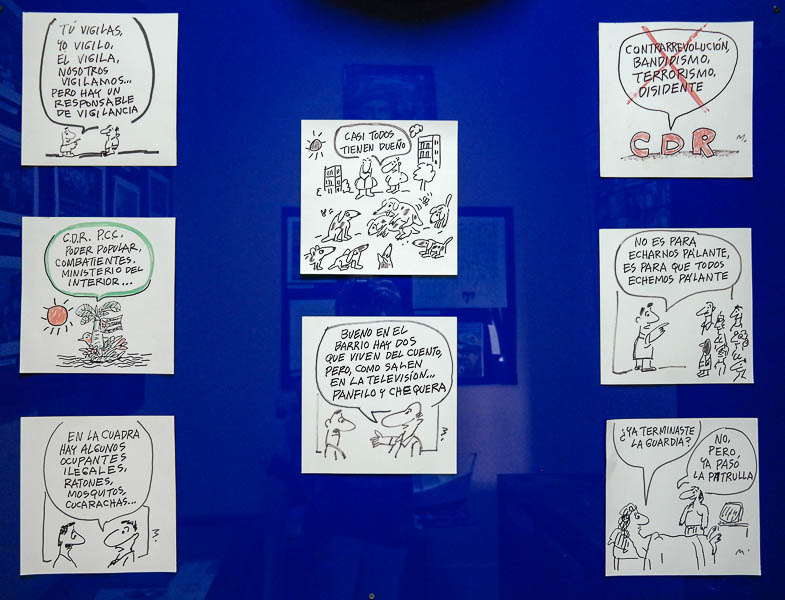 TÚ VIGILAS,
YO VIGILO,
EL VIGILA,
NOSOTROS
VIGILAMOS...
PERO HAY UN
RESPONSABLE
DE VIGILANCIA
C.D.R. P.C.C.
PODER POPULAR,
COMBATIENTES.
MINISTERIO DEL
INTERIOR...
EN LA CUADRA
HAY ALGUNOS
OCUPANTES
ILEGALES,
RATONES,
MOSQUITOS,
CUCARACHAS...
M.
CASI TODOS
TIENEN DUEÑO
BUENO EN EL
BARRIO HAY DOS
QUE VIVEN DEL CUENTO,
PERO, COMO SALEN
EN LA TELEVISÍON...
PANFILO Y CHEQUERA
M.
CONTRARREVOLUCIÓN,
BANDIDISMO,
TERRORISMO,
DISIDENTE
CDR
M.
NO ES PARA
ECHARNOS PA'LANTE,
ES PARA QUE TODOS
ECHEMOS PA'LANTE
¿YA TERMINASTE
LA GUARDIA?
NO,
PERO,
YA PASÓ
LA PATRULLA
M.